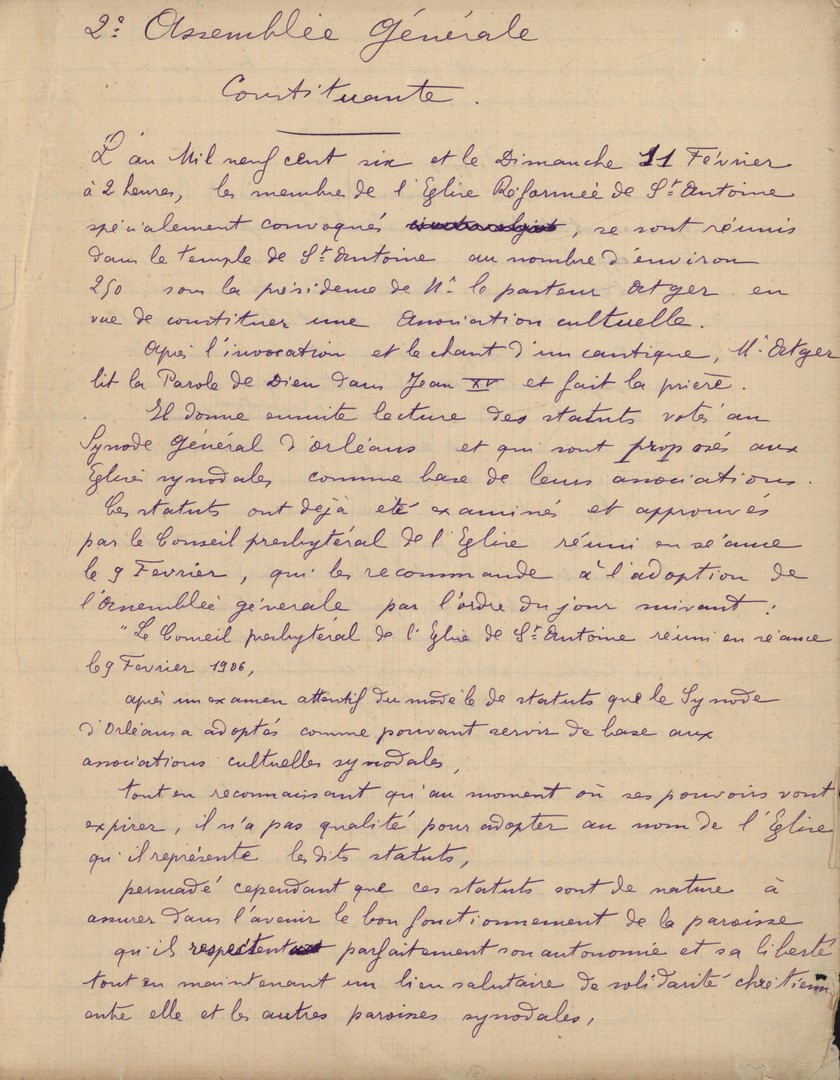 2e Assemblée Générale
Constituante.
L'an Mil neuf cent six et le Dimanche 11 Février
à 2 heures, les membres de l'Eglise Réformée de St Antoine
spécialement convoqués, se sont réunis
dans le temple de St Antoine au nombre d'environ
250 sous la présidence de Mr le pasteur Atger en
vue de constituer une Association cultuelle.
Après l'invocation et le chant d'un cantique, Mr Atger
lit la Parole de Dieu dans Jean XV et fait la prière.
Il donne ensuite lecture des statuts votés au
Synode Général d'Orléans et qui sont proposés aux
Eglises synodales comme base de leurs associations.
Ces statuts ont déjà été examinés et approuvés
par le Conseil presbytéral de l'Eglise réuni en séance
le 9 Fevrier, qui les recommande à l'adoption de
l'Assemblée générale par l'ordre du jour suivant :
"Le Conseil presbytéral de l'Eglise de St Antoine réuni en séance
le 9 Fevrier 1906,
après un examen attentif du modèle de statuts que le Synode
d'Orléans a adoptés comme pouvant servir de base aux
associations cultuelles synodales,
tout en reconnaissant qu'au moment où ses pouvoirs vont
expirer, il n'a pas qualité pour adopter au nom de l'Eglise
qu'il représente les dits statuts,
persuadé cependant que ces statuts sont de nature à
assurer dans l'avenir le bon fonctionnement de la paroisse
qu'ils respectent parfaitement son autonomie et sa liberté
tout en maintenant un lien salutaire de solidarité chrétienne
entre elle et les autres paroisses synodales,